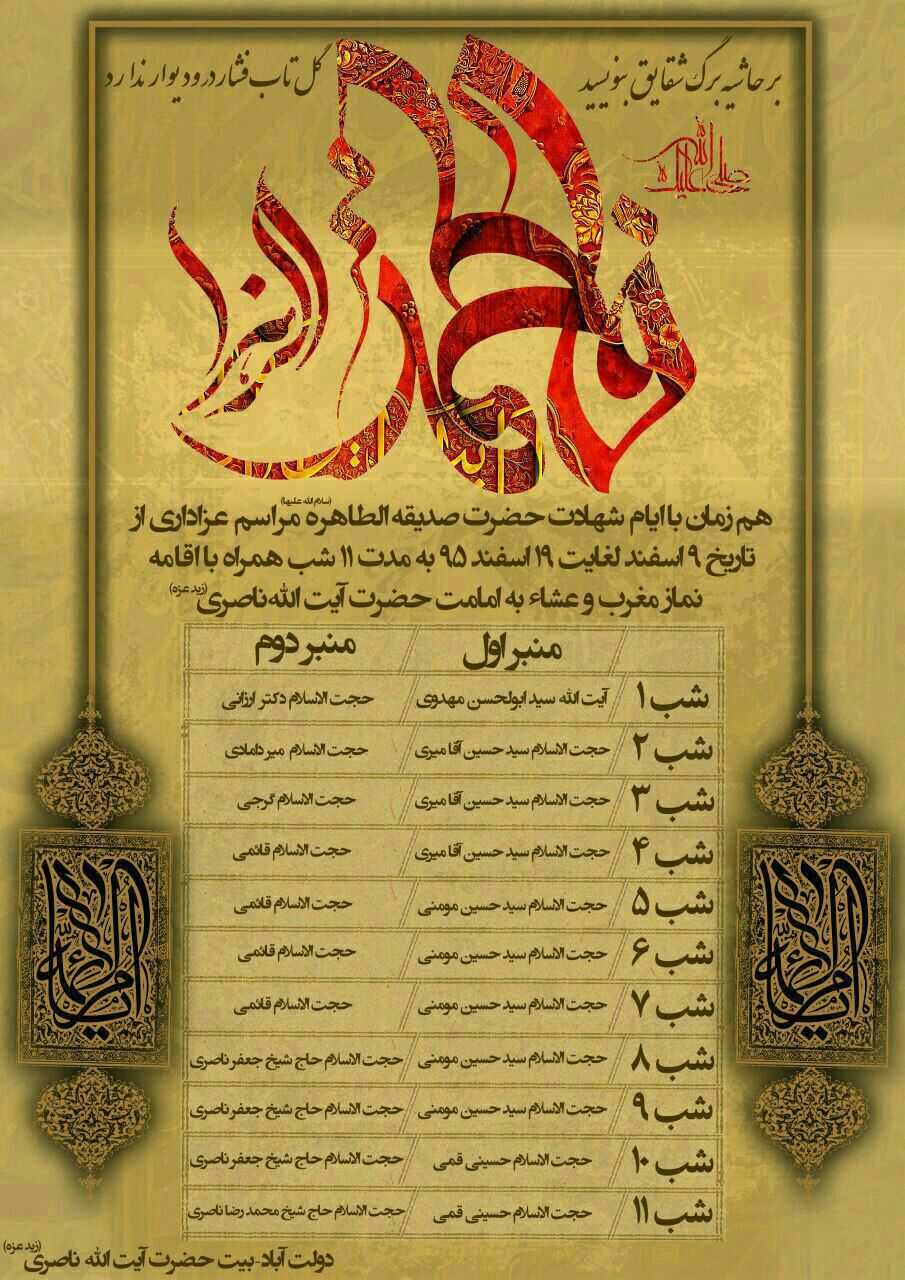 بر حاشیه برگ شقایق بنویسید
گل تاب فشار در و دیوار ندارد
صلی الله علیک
یا فاطمة الزهرا
هم زمان با ایام شهادت حضرت صدیقه الطاهره (سلام الله علیها) مراسم عزاداری از
تاریخ ۹ اسفند لغایت ۱۹ اسفند ۹۵ به مدت ۱۱ شب همراه با اقامه
نماز مغرب و عشاء به امامت حضرت آیت الله ناصری (زید عزه)
منبر اول منبر دوم
شب ۱ آیت الله سید ابولحسن مهدوی حجت الاسلام دکتر ارزانی
شب ۲ حجت الاسلام سید حسین آقا میری حجت الاسلام میر دامادی
شب ۳ حجت الاسلام سید حسین آقا میری حجت الاسلام گرجی
شب ۴ حجت الاسلام سید حسین آقا میری حجت الاسلام قائمی
شب ۵ حجت الاسلام سید حسین مومنی حجت الاسلام قائمی
شب ۶ حجت الاسلام سید حسین مومنی حجت الاسلام قائمی
شب ۷ حجت الاسلام سید حسین مومنی حجت الاسلام قائمی
شب ۸ حجت الاسلام سید حسین مومنی حجت الاسلام حاج شیخ جعفر ناصری
شب ۹ حجت الاسلام سید حسین مومنی حجت الاسلام حاج شیخ جعفر ناصری
شب ۱۰ حجت الاسلام حسینی قمی حجت الاسلام حاج شیخ جعفر ناصری
شب ۱۱ حجت الاسلام حسینی قمی حجت الاسلام حاج شیخ محمد رضا ناصری
دولت آباد-بیت حضرت آیت الله ناصری (زید عزه)